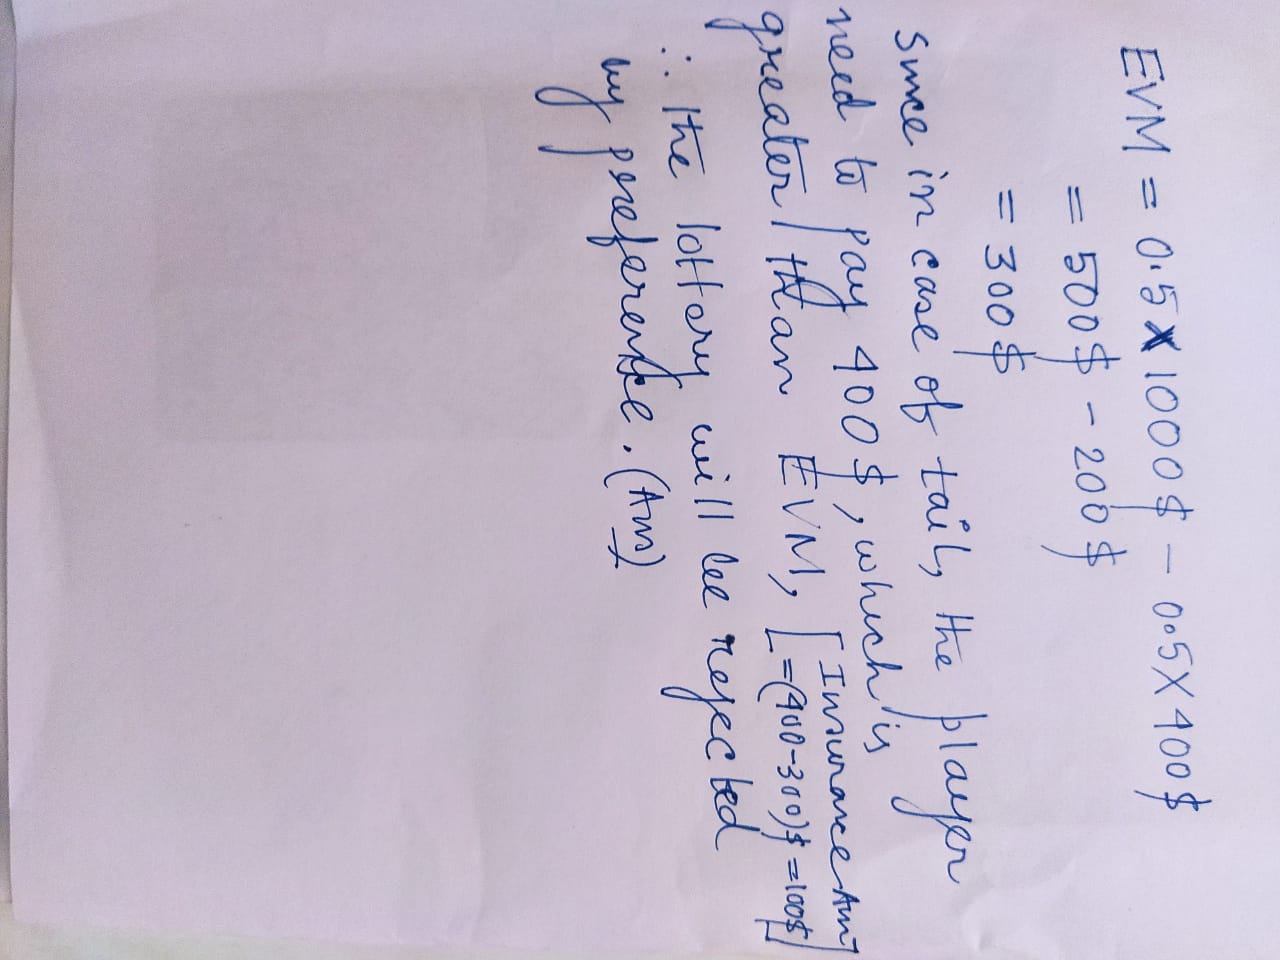 EVM = 0.5 X 1000 $ - 0.5 X 400 $
= 500 $ - 200 $
= 300 $
Since in case of tail, the player
need to pay 400 $, which is
greater than EVM, [Insurance Amt
= (400-300)$ = 100$]
∴ the lottery will be rejected
by preference. (Ans)